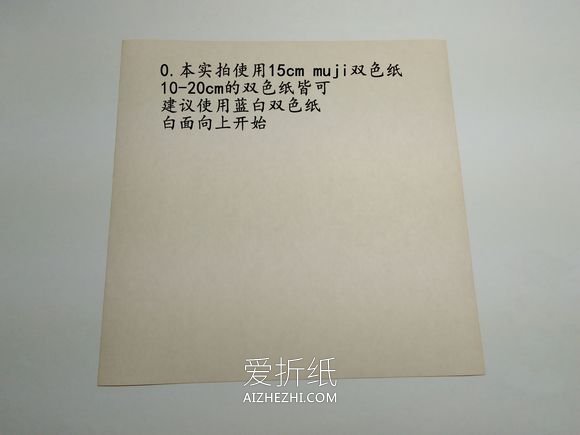 0.本实拍使用15cm muji双色纸
10-20cm的双色纸皆可
建议使用蓝白双色纸
白面向上开始
爱折纸
AIZHEZHI.COM